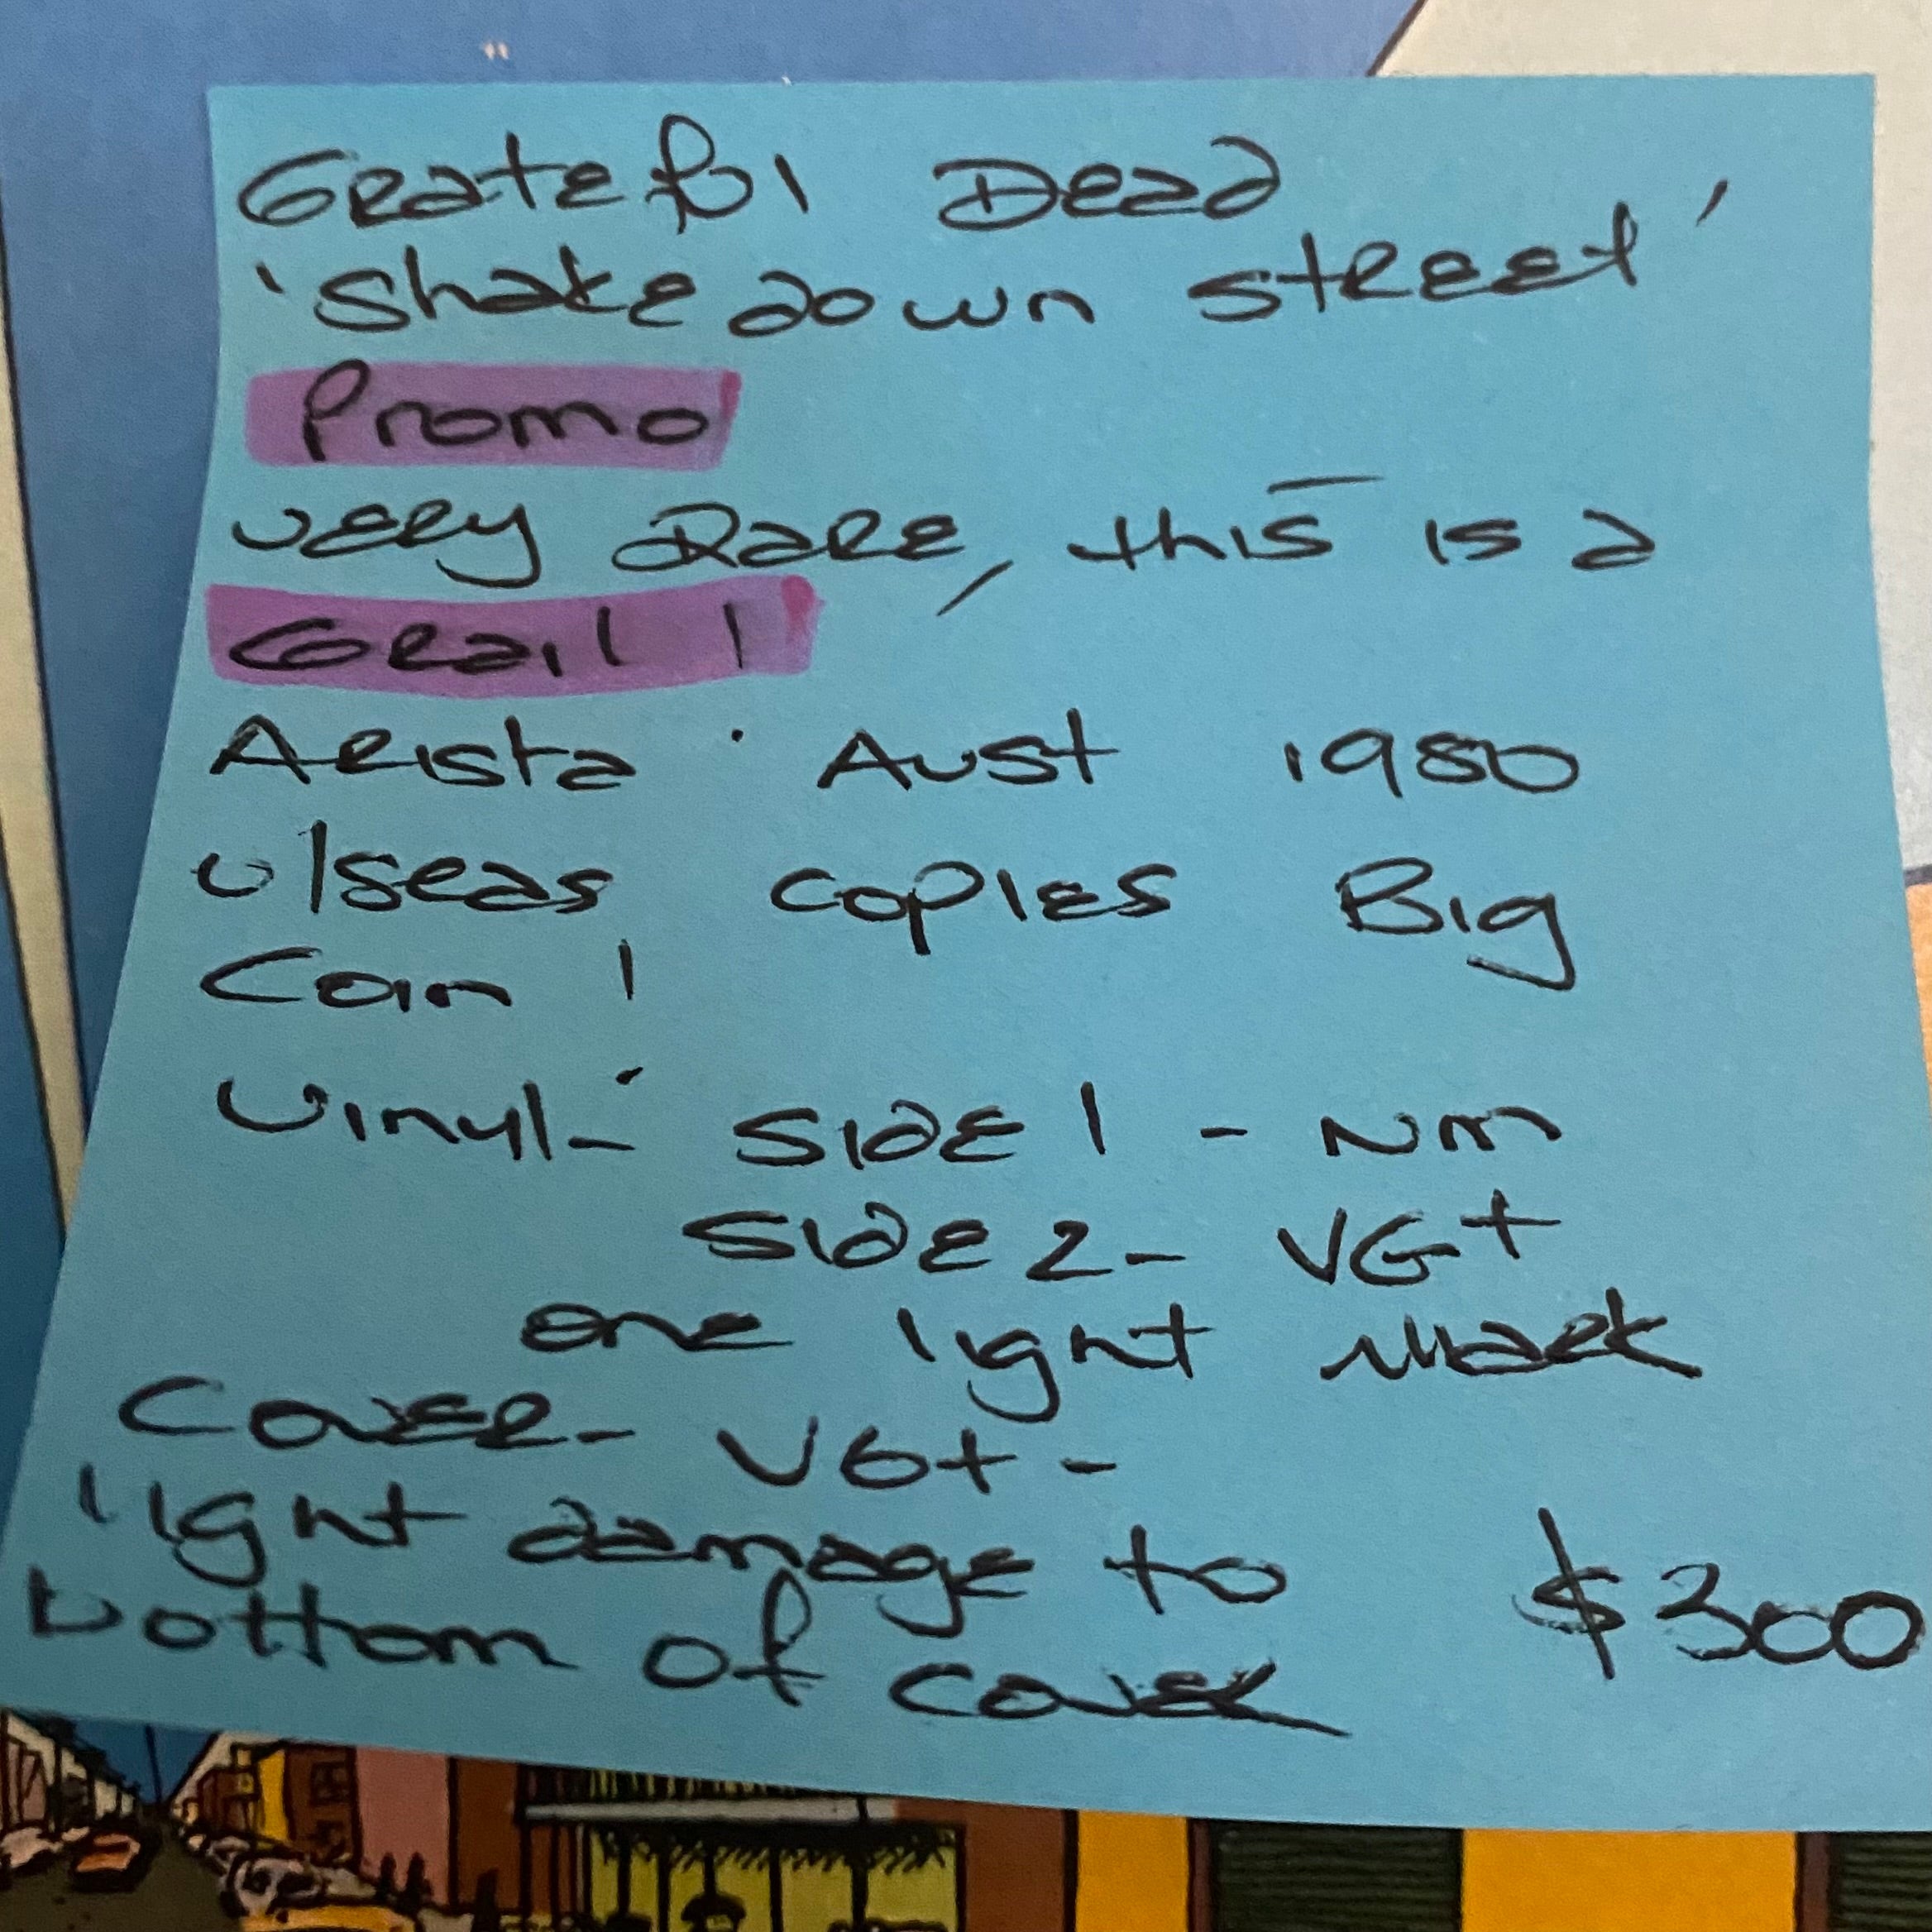 Grateful Dead
'Shakedown Street'
Promo
Very Rare, this is a
Grail!
Arista Aust 1980
O/seas copies Big
Coin!
Vinyl - Side 1 - NM
Side 2 - VG+
one light mark
Cover - VG+ -
light damage to
bottom of cover $300